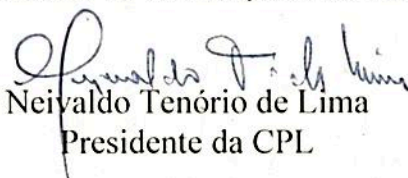 Neivaldo Tenório de Lima
Presidente da CPL